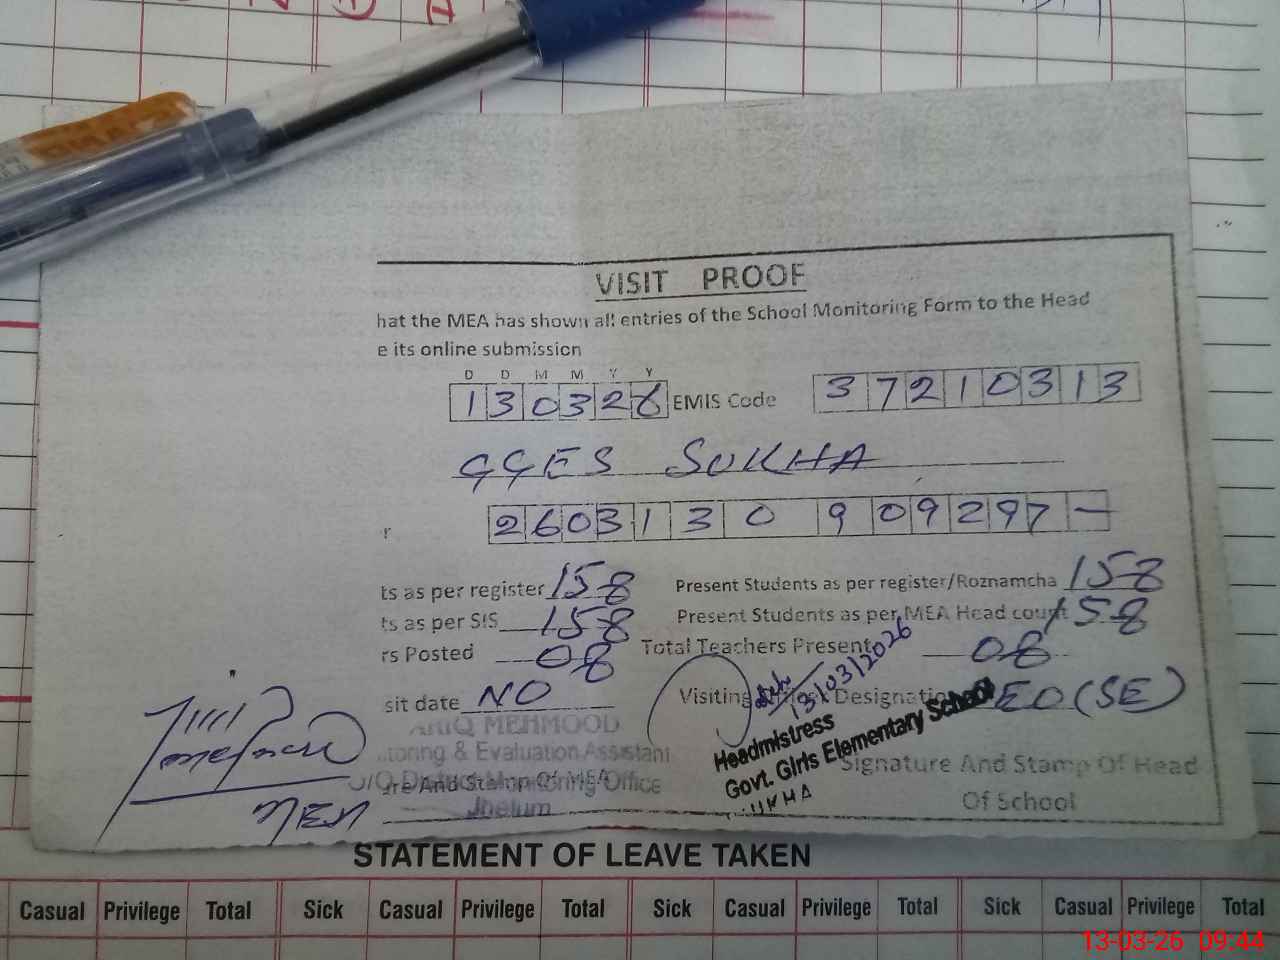 VISIT PROOF
hat the MEA has shown all entries of the School Monitoring Form to the Head
e its online submission
D D M M Y Y
130326 EMIS Code 37210313
GGES SUKHA
r 2603130909297-
ts as per register 158 Present Students as per register/Roznamcha 158
ts as per SIS 158 Present Students as per MEA Head count 158
rs Posted 08 Total Teachers Present 08
sit date NO Visiting Designation EO (SE)
13/03/2026
TARIQ MEHMOOD
toring & Evaluation Assistant
Office
Jhelum
MEA
Headmistress
Govt. Girls Elementary School
UKHA
Signature And Stamp Of Head
Of School
STATEMENT OF LEAVE TAKEN
Casual Privilege Total Sick Casual Privilege Total Sick Casual Privilege Total Sick Casual Privilege Total
13-03-26 09:44